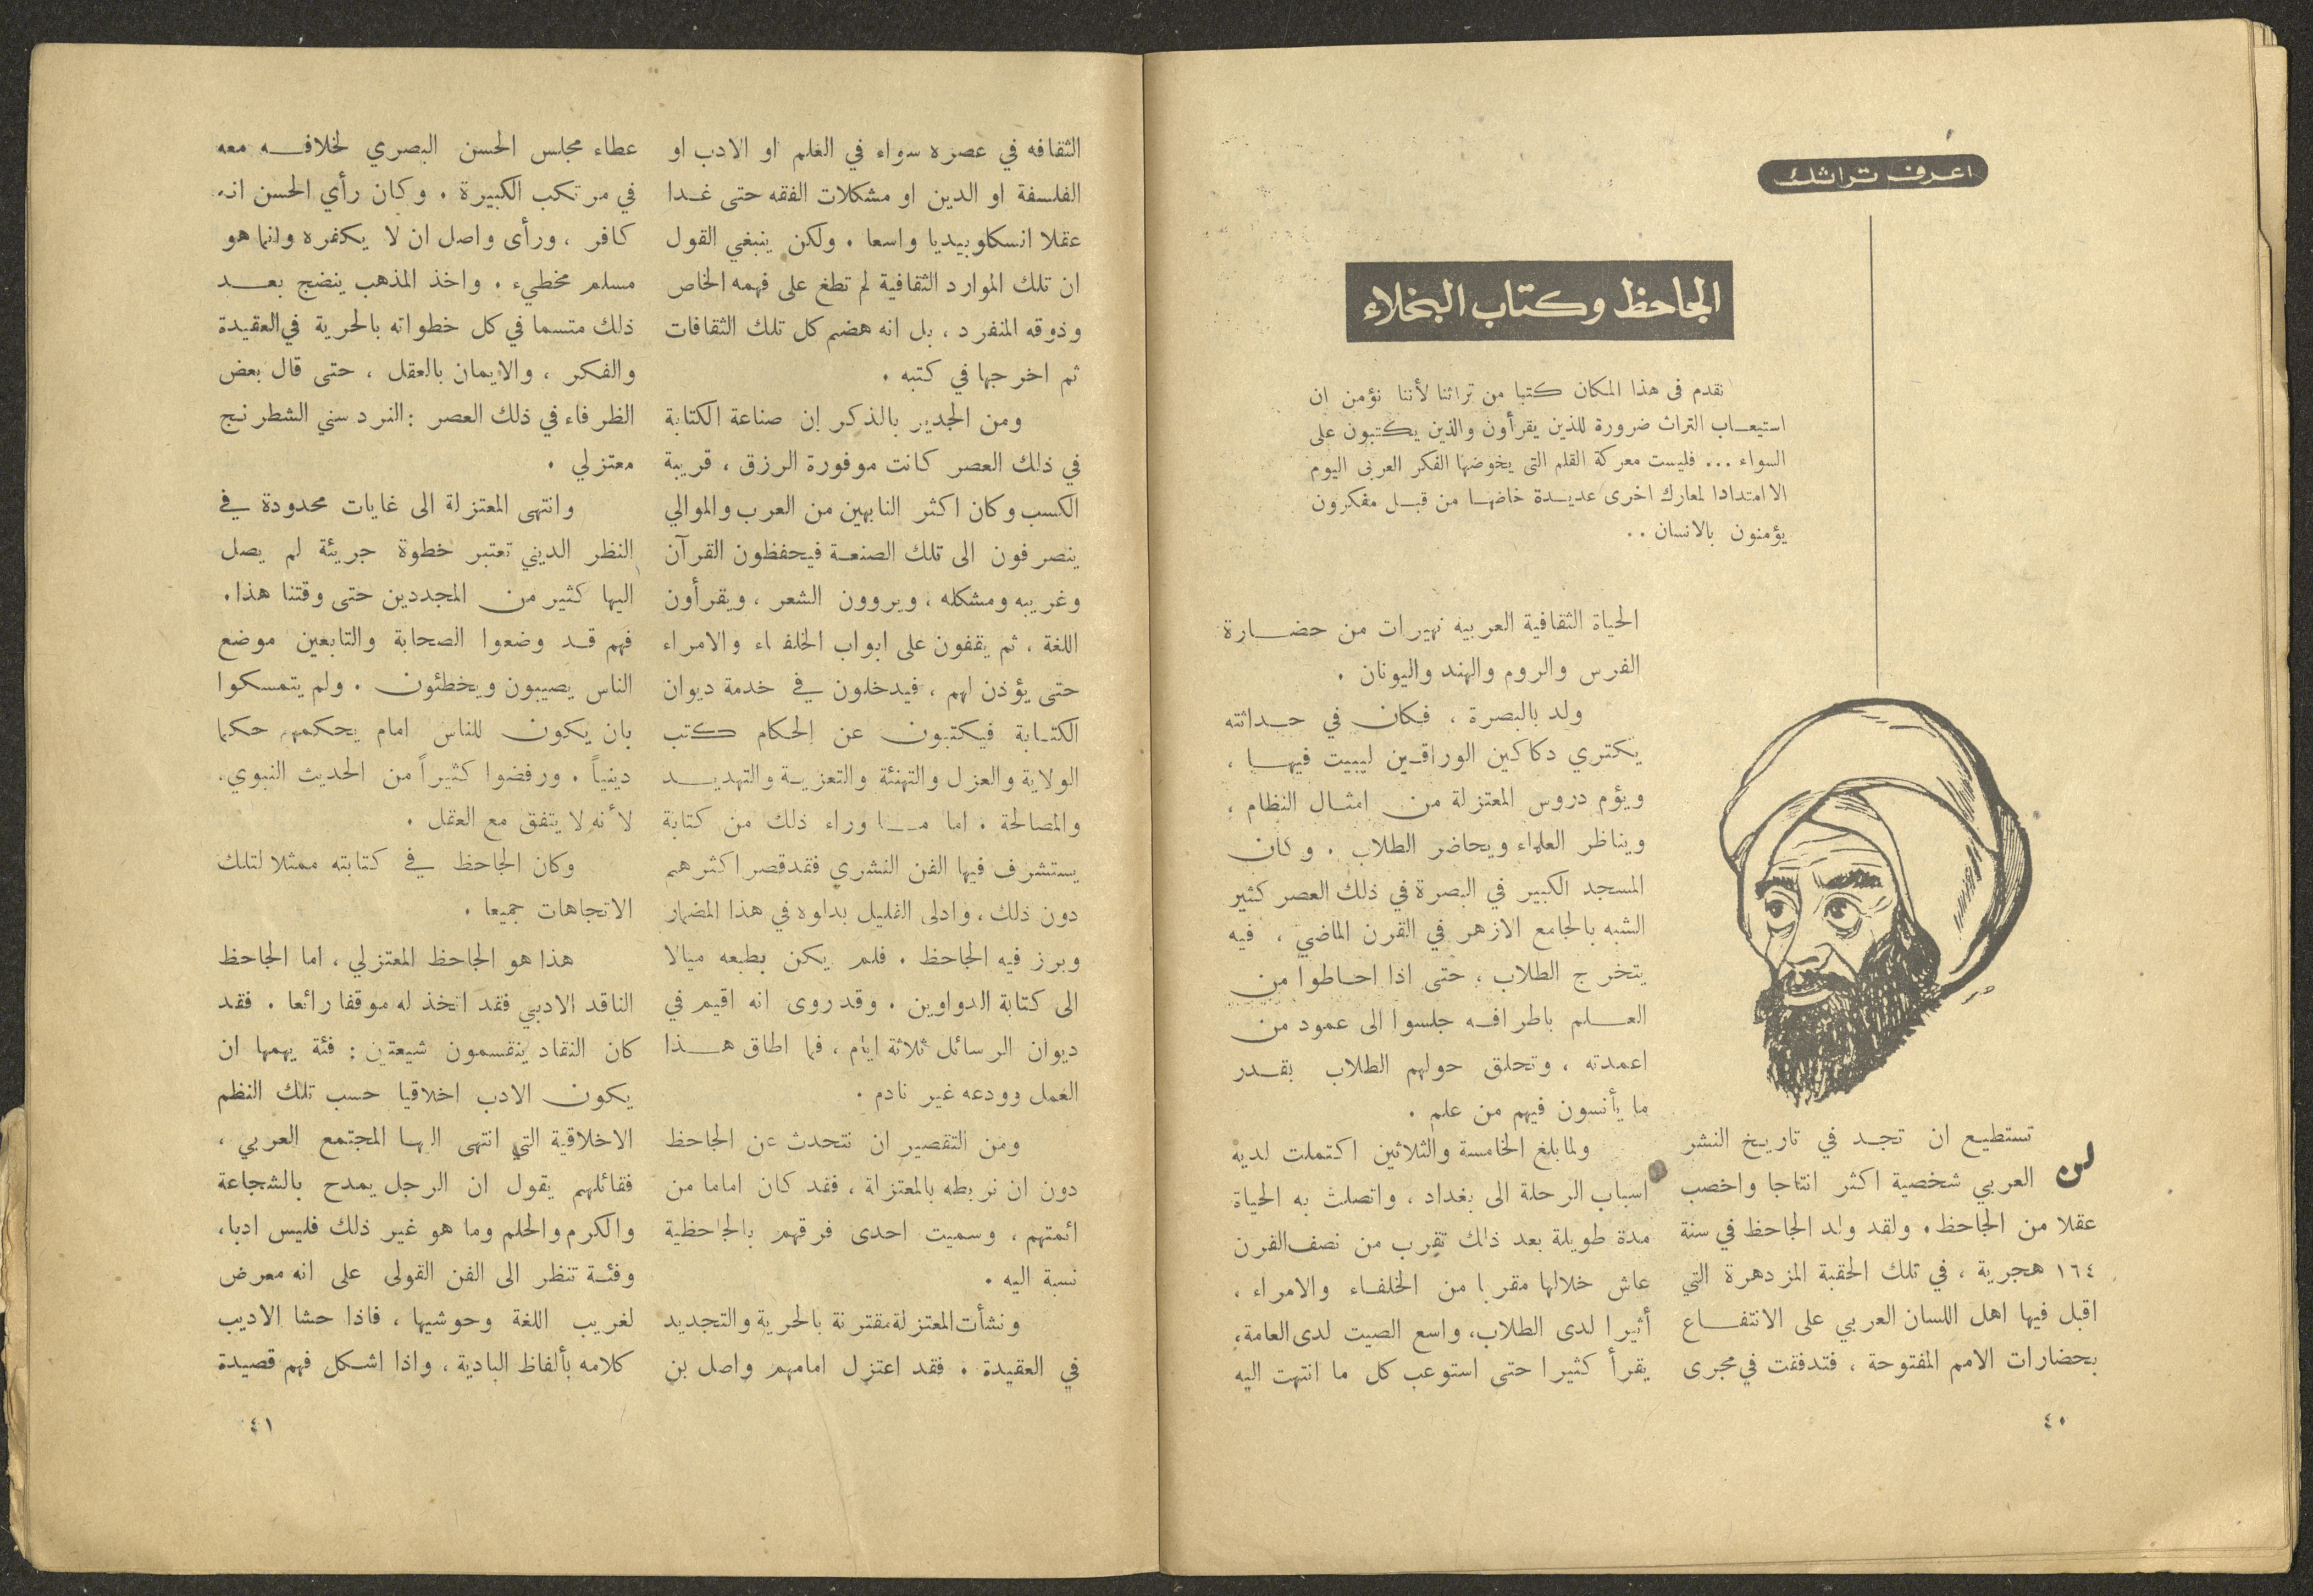 اعرف تراثك
الجاحظ وكتاب البخلاء
نقدم فى هذا المكان كتبا من تراثنا لأننا نؤمن ان
استيعاب التراث ضرورة للذين يقرأون والذين يكتبون على
السواء ... فليست معركة القلم التى يخوضها الفكر العربى اليوم
الا امتدادا لمعارك اخرى عديدة خاضها من قبل مفكرون
يؤمنون بالانسان ..
لن تستطيع ان تجد في تاريخ النثر
العربي شخصية اكثر انتاجا واخصب
عقلا من الجاحظ . ولقد ولد الجاحظ في سنة
١٦٤ هجرية ، في تلك الحقبة المزدهرة التي
اقبل فيها اهل اللسان العربي على الانتفاع
بحضارات الامم المفتوحة ، فتدفقت في مجرى
الحياة الثقافية العربيه نهيرات من حضارة
الفرس والروم والهند واليونان .
ولد بالبصرة ، فكان في حداثته
يكتري دكاكين الوراقين ليبيت فيها ،
ويؤم دروس المعتزلة من امثال النظام ،
ويناظر العلماء ويحاضر الطلاب . وكان
المسجد الكبير في البصرة في ذلك العصر كثير
الشبه بالجامع الازهر في القرن الماضي ، فيه
يتخرج الطلاب ، حتى اذا احاطوا من
العلم باطرافه جلسوا الى عمود من
اعمدته ، وتحلق حولهم الطلاب بقدر
ما يأنسون فيهم من علم .
ولما بلغ الخامسة والثلاثين اكتملت لديه
اسباب الرحلة الى بغداد ، واتصلت به الحياة
مدة طويلة بعد ذلك تقرب من نصف القرن
عاش خلالها مقربا من الخلفاء والامراء ،
أثيرا لدى الطلاب، واسع الصيت لدى العامة،
يقرأ كثيرا حتى استوعب كل ما انتهت اليه
٤٠
الثقافه في عصره سواء في العلم او الادب او
الفلسفة او الدين او مشكلات الفقه حتى غدا
عقلا انسكلوبيديا واسعا . ولكن ينبغي القول
ان تلك الموارد الثقافية لم تطغ على فهمه الخاص
وذوقه المنفرد ، بل انه هضم كل تلك الثقافات
ثم اخرجها في كتبه .
ومن الجدير بالذكر إن صناعة الكتابة
في ذلك العصر كانت موفورة الرزق ، قريبة
الكسب وكان اكثر النابهين من العرب والموالي
ينصرفون الى تلك الصنعة فيحفظون القرآن
وغريبه ومشكله ، ويروون الشعر ، ويقرأون
اللغة ، ثم يقفون على ابواب الخلفاء والامراء
حتى يؤذن لهم ، فيدخلون في خدمة ديوان
الكتابة فيكتبون عن الحكام كتب
الولاية والعزل والتهنئة والتعزية والتهديد
والمصالحة . اما ما وراء ذلك من كتابة
يستشرف فيها الفن النثري فقد قصر اكثرهم
دون ذلك ، وادلى القليل بدلوه في هذا المضمار
وبرز فيه الجاحظ . فلم يكن بطبعه ميالا
الى كتابة الدواوين . وقد روى انه اقيم في
ديوان الرسائل ثلاثة ايام ، فما اطاق هذا
العمل وودعه غير نادم .
ومن التقصير ان نتحدث عن الجاحظ
دون ان نربطه بالمعتزلة ، فقد كان اماما من
ائمتهم ، وسميت احدى فرقهم بالجاحظية
نسبة اليه .
ونشأت المعتزلة مقترنة بالحرية والتجديد
في العقيدة . فقد اعتزل امامهم واصل بن
عطاء مجلس الحسن البصري لخلافه معه
في مرتكب الكبيرة . وكان رأي الحسن انه
كافر ، ورأى واصل ان لا يكفره وانما هو
مسلم مخطيء . واخذ المذهب ينضج بعد
ذلك متسما في كل خطواته بالحرية في العقيدة
والفكر ، والايمان بالعقل ، حتى قال بعض
الظرفاء في ذلك العصر : النرد سني الشطرنج
معتزلي .
وانتهى المعتزلة الى غايات محدودة في
النظر الديني تعتبر خطوة جريئة لم يصل
اليها كثير من المجددين حتى وقتنا هذا .
فهم قد وضعوا الصحابة والتابعين موضع
الناس يصيبون ويخطئون . ولم يتمسكوا
بان يكون للناس امام يحكمهم حكما
دينياً . ورفضوا كثيراً من الحديث النبوي،
لأنه لا يتفق مع العقل .
وكان الجاحظ في كتابته ممثلا لتلك
الاتجاهات جميعا .
هذا هو الجاحظ المعتزلي ، اما الجاحظ
الناقد الادبي فقد اتخذ له موقفا رائعا . فقد
كان النقاد ينقسمون شيعتين : فئة يهمها ان
يكون الادب اخلاقيا حسب تلك النظم
الاخلاقية التي انتهى اليها المجتمع العربي ،
فقائلهم يقول ان الرجل يمدح بالشجاعة
والكرم والحلم وما هو غير ذلك فليس ادبا،
وفئة تنظر الى الفن القولى على انه معرض
لغريب اللغة وحوشيها ، فاذا حشا الاديب
كلامه بألفاظ البادية ، واذا اشكل فهم قصيدة
٤١